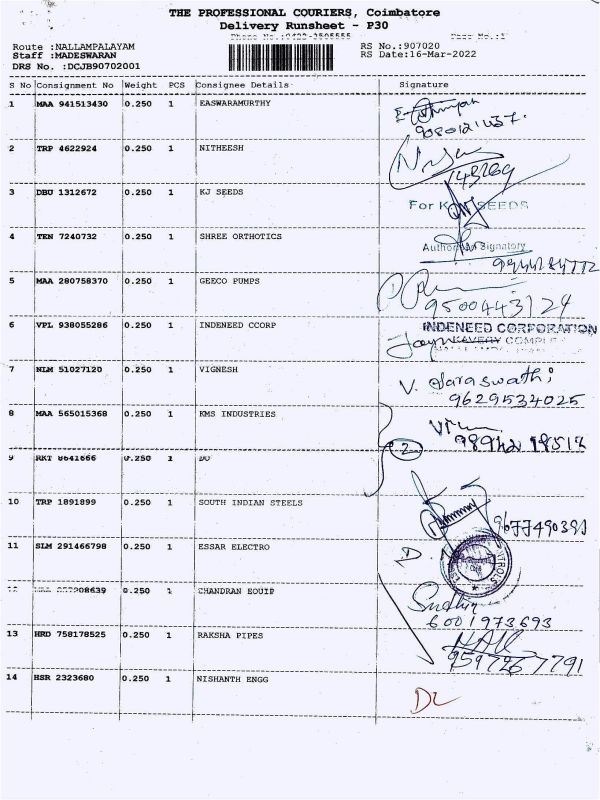 THE PROFESSIONAL COURIERS, Coimbatore
Delivery Runsheet - P30
Phone No.:0422-3505555
Route :NALLAMPALAYAM
RS No.:907020
Staff :MADESWARAN
RS Date:16-Mar-2022
DRS No. :DCJB90702001
S No Consignment No Weight PCS Consignee Details Signature
1 MAA 941513430 0.250 1 EASWARAMURTHY
2 TRP 4622924 0.250 1 NITHEESH
3 DBU 1312672 0.250 1 KJ SEEDS
For SEEDS
4 TEN 7240732 0.250 1 SHREE ORTHOTICS
Signatory
5 MAA 280758370 0.250 1 GEECO PUMPS
9500443124
6 VPL 938055286 0.250 1 INDENEED CCORP
INDENEED CORPORATION
7 NLM 51027120 0.250 1 VIGNESH
V. Saraswathi
9629534025
8 MAA 565015368 0.250 1 KMS INDUSTRIES
2
9 RKT 8641666 0.250 1 DO
10 TRP 1891899 0.250 1 SOUTH INDIAN STEELS
9677490391
11 SLM 291466798 0.250 1 ESSAR ELECTRO
0.250 1 CHANDRAN EQUIP
6001973693
13 HRD 758178525 0.250 1 RAKSHA PIPES
9597267791
14 HSR 2323680 0.250 1 NISHANTH ENGG
DL